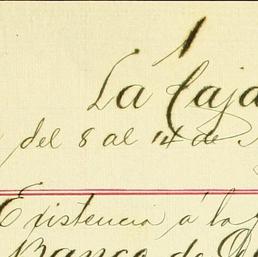 1
La Caja
del 8 al 14 de
Existencia á la
Banco de